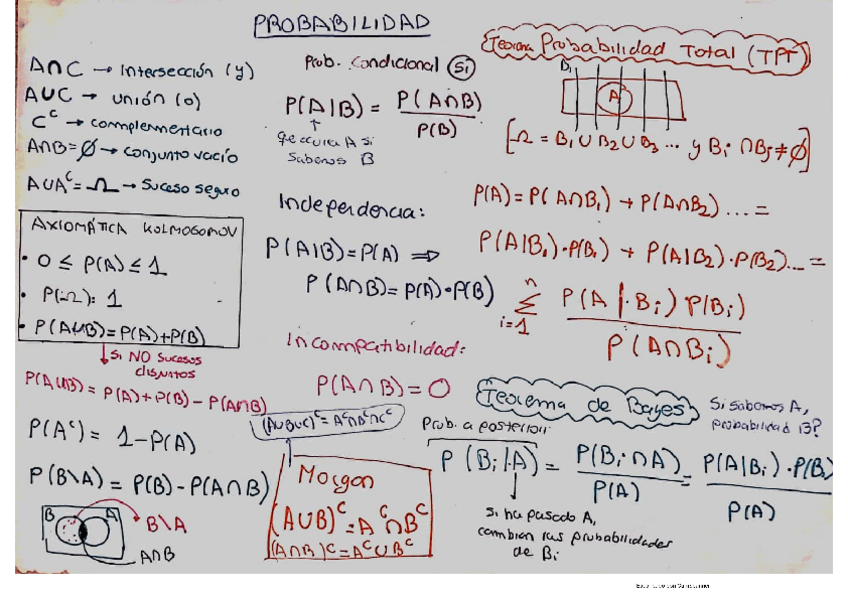 PROBABILIDAD
A∩C → Intersección (y)
A∪C → unión (o)
C^c → complementario
A∩B=∅ → conjunto vacío
A∪A^c=Ω → Suceso seguro
AXIOMÁTICA KOLMOGOROV
• 0 ≤ P(A) ≤ 1
• P(Ω): 1
• P(A∪B)=P(A)+P(B)
↓ Si NO sucesos
disjuntos
P(A∪B) = P(A)+P(B) - P(A∩B)
P(A^c) = 1-P(A)
P(B\A) = P(B)-P(A∩B)
B A
B\A
A∩B
Prob. Condicional (Si)
P(A|B) = P(A∩B) / P(B)
↑
que ocurra A si
sabemos B
Independencia:
P(A|B)=P(A) ⇒
P(A∩B)=P(A)·P(B)
Incompatibilidad:
P(A∩B)=0
(A∪B∪C)^c=A^c∩B^c∩C^c
Morgan
(A∪B)^c=A^c∩B^c
(A∩B)^c=A^c∪B^c
Teorema Probabilidad Total (TPT)
B₁
A
[Ω = B₁∪B₂∪B₃ ... y Bᵢ∩Bⱼ≠∅]
P(A)=P(A∩B₁)+P(A∩B₂)...=
P(A|B₁)·P(B₁)+P(A|B₂)·P(B₂)...=
n
Σ P(A|·Bᵢ)P(Bᵢ) / P(A∩Bᵢ)
i=1
Teorema de Bayes
Si sabemos A,
probabilidad B?
Prob. a posteriori
P(Bᵢ|A) = P(Bᵢ∩A) / P(A) = P(A|Bᵢ)·P(Bᵢ) / P(A)
↓
si ha pasado A,
cambian las probabilidades
de Bᵢ